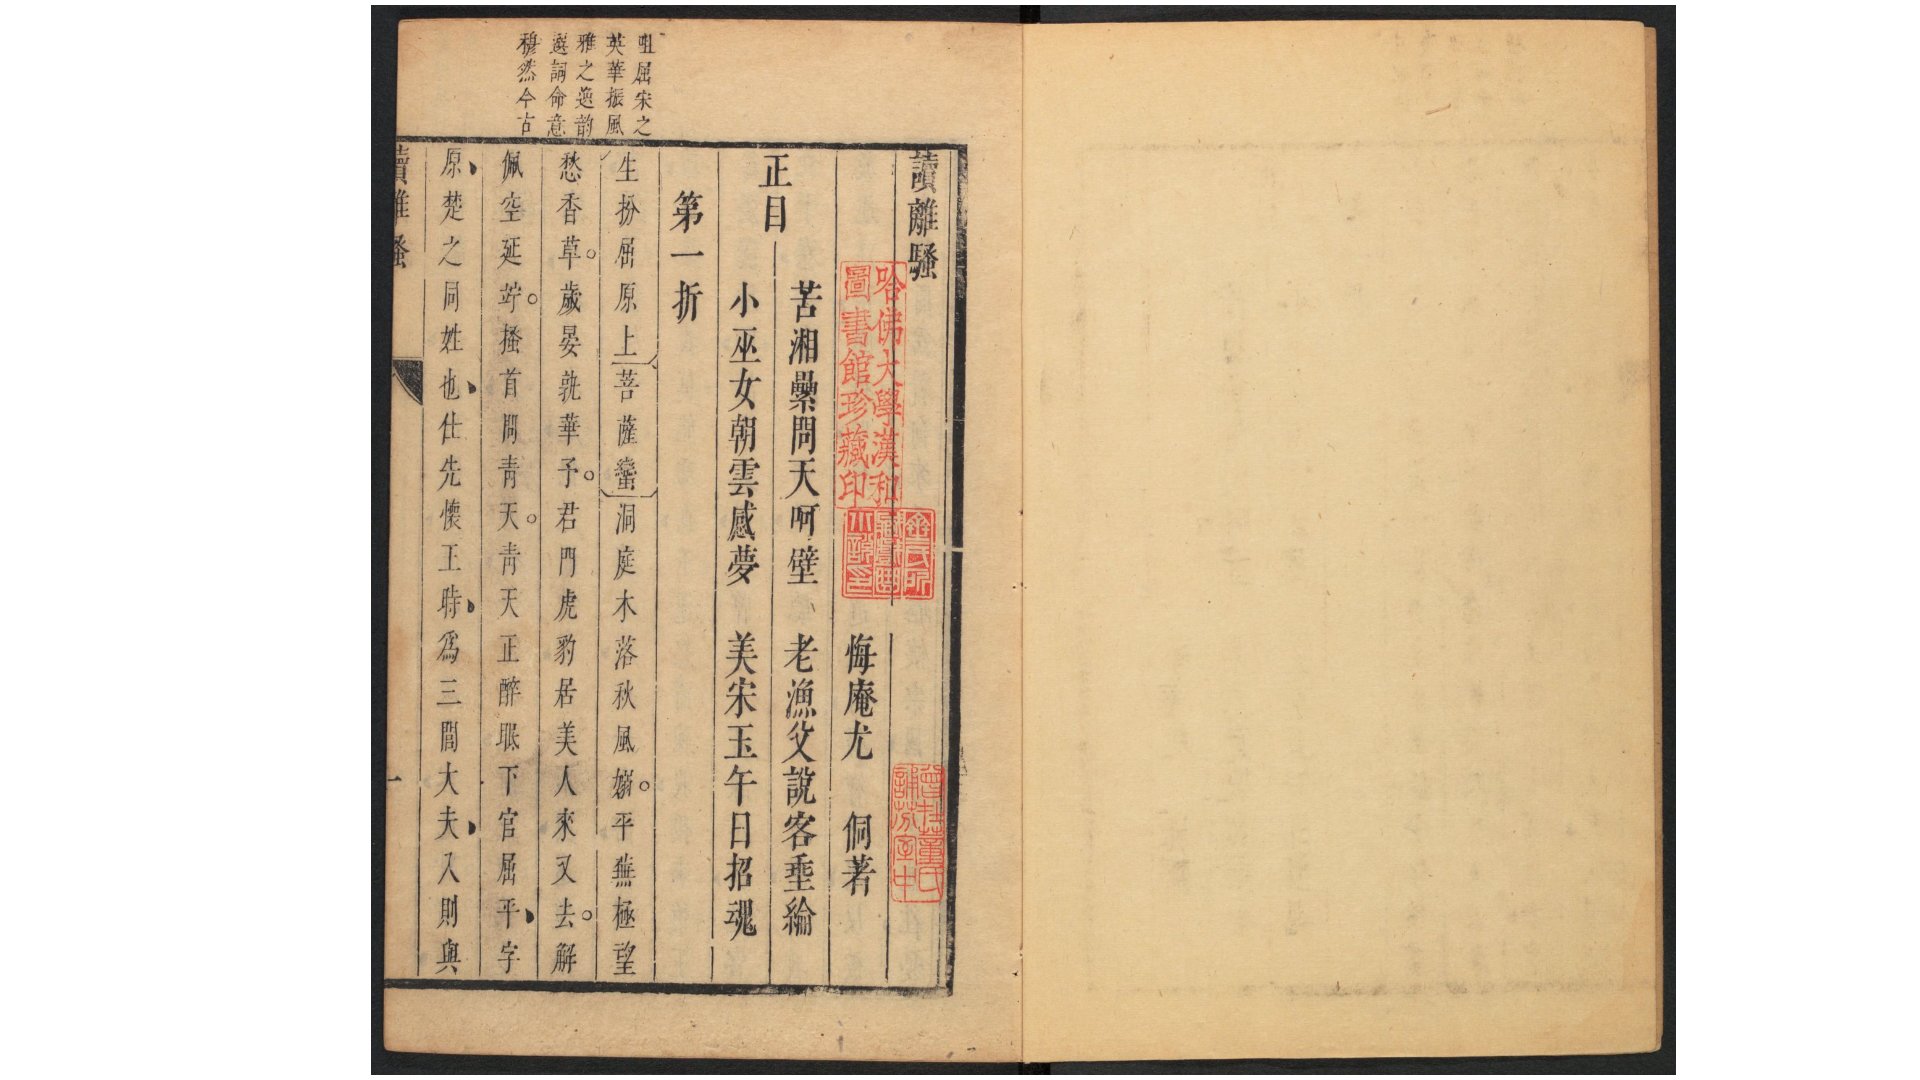 咀屈宋之
英華振風
雅之逸韵
選詞命意
穆然今古
讀離騷
悔庵尤 侗著
正目
苦湘纍問天呵壁 老漁父說客垂綸
小巫女朝雲感夢 美宋玉午日招魂
第一折
生扮屈原上菩薩蠻洞庭木落秋風嫋平蕪極望
愁香草歲晏孰華予君門虎豹居美人來又去解
佩空延竚搔首問青天青天正醉眠下官屈平字
原楚之同姓也仕先懷王時爲三閭大夫入則與
讀離騷
一
哈佛大學漢和
圖書館珍藏印
曾在董氏
誦芬室中